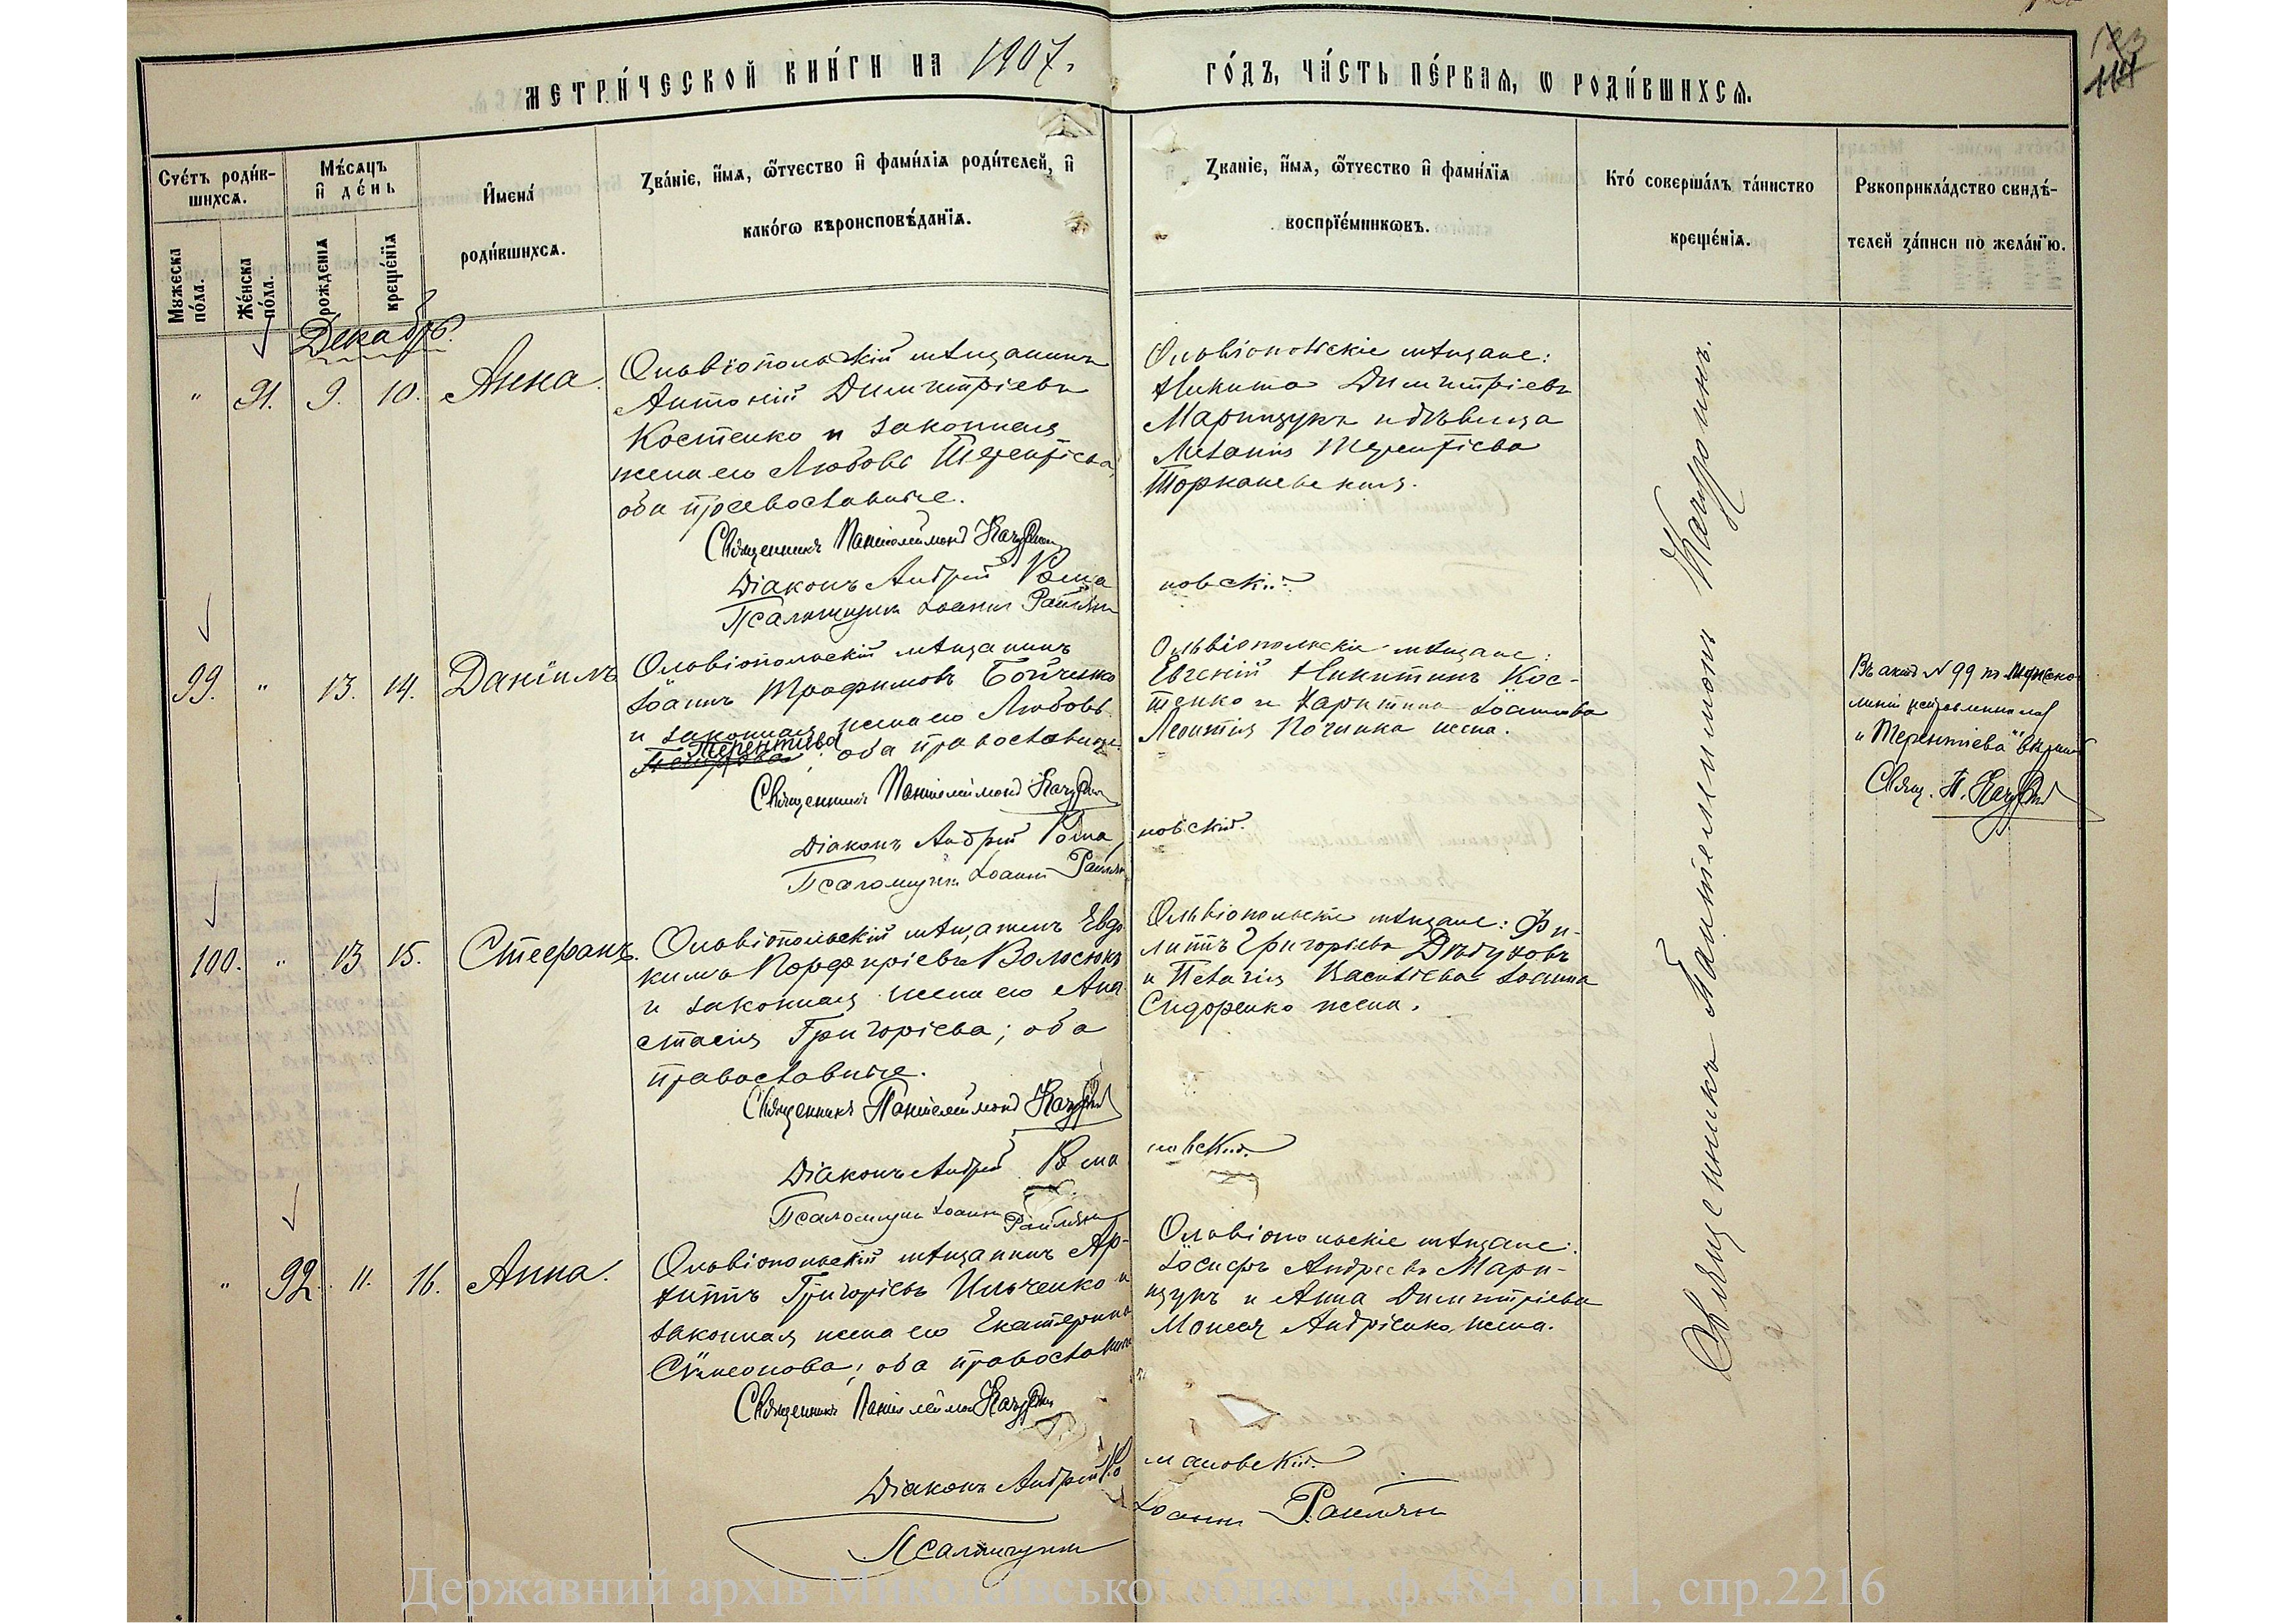 МЕТРИ́ЧЕСКОЙ КНИ́ГИ НА 1907.
ГО́ДЪ, ЧА́СТЬ ПЕ́РВАѦ, Ѡ РОДИ́ВШИХСѦ.
Сче́тъ роди́в-
шихсѧ.
Му́жеска по́ла.
Же́нска по́ла.
Мѣ́сяцъ
и҆ де́нь
рожденїѧ
креще́нїѧ
И҆мена́
роди́вшихсѧ.
Зва́нїе, и҆́мѧ, ѻ҆́тчество и҆ фами́лїѧ роди́телей, и҆
како́гѡ вѣроисповѣ́данїѧ.
Званїе, и҆́мѧ, ѻ҆́тчество и҆ фами́лїѧ
воспрїе́мниковъ.
Кто́ соверша́лъ та́инство
креще́нїѧ.
Рукоприкла́дство свидѣ́-
телей за́писи по жела́нїю.
Декабрь.
" 91. 9. 10. Анна.
Ольвіопольскій мѣщанинъ
Антоній Димитріевъ
Костенко и законная
жена его Любовь Терентіева,
оба православные.
Священникъ Пантелеймонъ
Діаконъ Андрей Романовскій
Псаломщикъ Іоаннъ
Ольвіопольскіе мѣщане:
Никита Димитріевъ
Марищукъ и дѣвица
Меланія Терентіева
99. " 13. 14. Даніилъ
Ольвіопольскій мѣщанинъ
Іоаннъ Трофимовъ Бойченко
и законная жена его Любовь
Терентіева; оба православные.
Священникъ Пантелеймонъ
Діаконъ Андрей Романовскій.
Псаломщикъ Іоаннъ
Ольвіопольскіе мѣщане:
Евгеній Никитинъ Кос-
тенко и Харитина Іоаннова
Леонтія Починка жена.
Въ актѣ № 99
"Терентіева"
Свящ. П.
100. " 13 15. Стефанъ.
Ольвіопольскій мѣщанинъ Евдо-
кимъ Порфиріевъ Волосюкъ
и законная жена его Ана-
стасія Григорієва; оба
православные.
Священникъ Пантелеймонъ
Діаконъ Андрей Романовскій.
Псаломщикъ Іоаннъ
Ольвіопольскіе мѣщане: Фи-
липпъ Григорьевъ
и Пелагія Васильева Іоанна
Сидоренко жена.
" 92. 11. 16. Анна.
Ольвіопольскій мѣщанинъ Ар-
хиппъ Григорієвъ Ильченко и
законная жена его Екатерина
Сѵмеонова; оба православные
Священникъ Пантелеймонъ
Діаконъ Андрей Романовскій.
Псаломщикъ Іоаннъ
Ольвіопольскіе мѣщане:
Іосифъ Андреевъ Мари-
щукъ и Анна Димитріева
Моисея Андріенко жена.
Священникъ Пантелеймонъ
Державний архів Миколаївської області, ф.484, оп.1, спр.2216